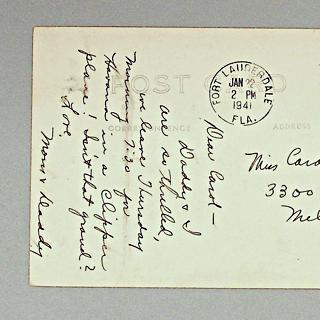 POST CARD
CORRESPONDENCE
ADDRESS
FORT LAUDERDALE
JAN 22
2 PM
1941
FLA.
Dear Carol -
Daddy & I
are so thrilled,
we leave Thursday
morning 7:30 for
Havana in a Clipper
plane! Isn't that grand?
Love,
Mom & Daddy
Miss Caro
3300
Mel